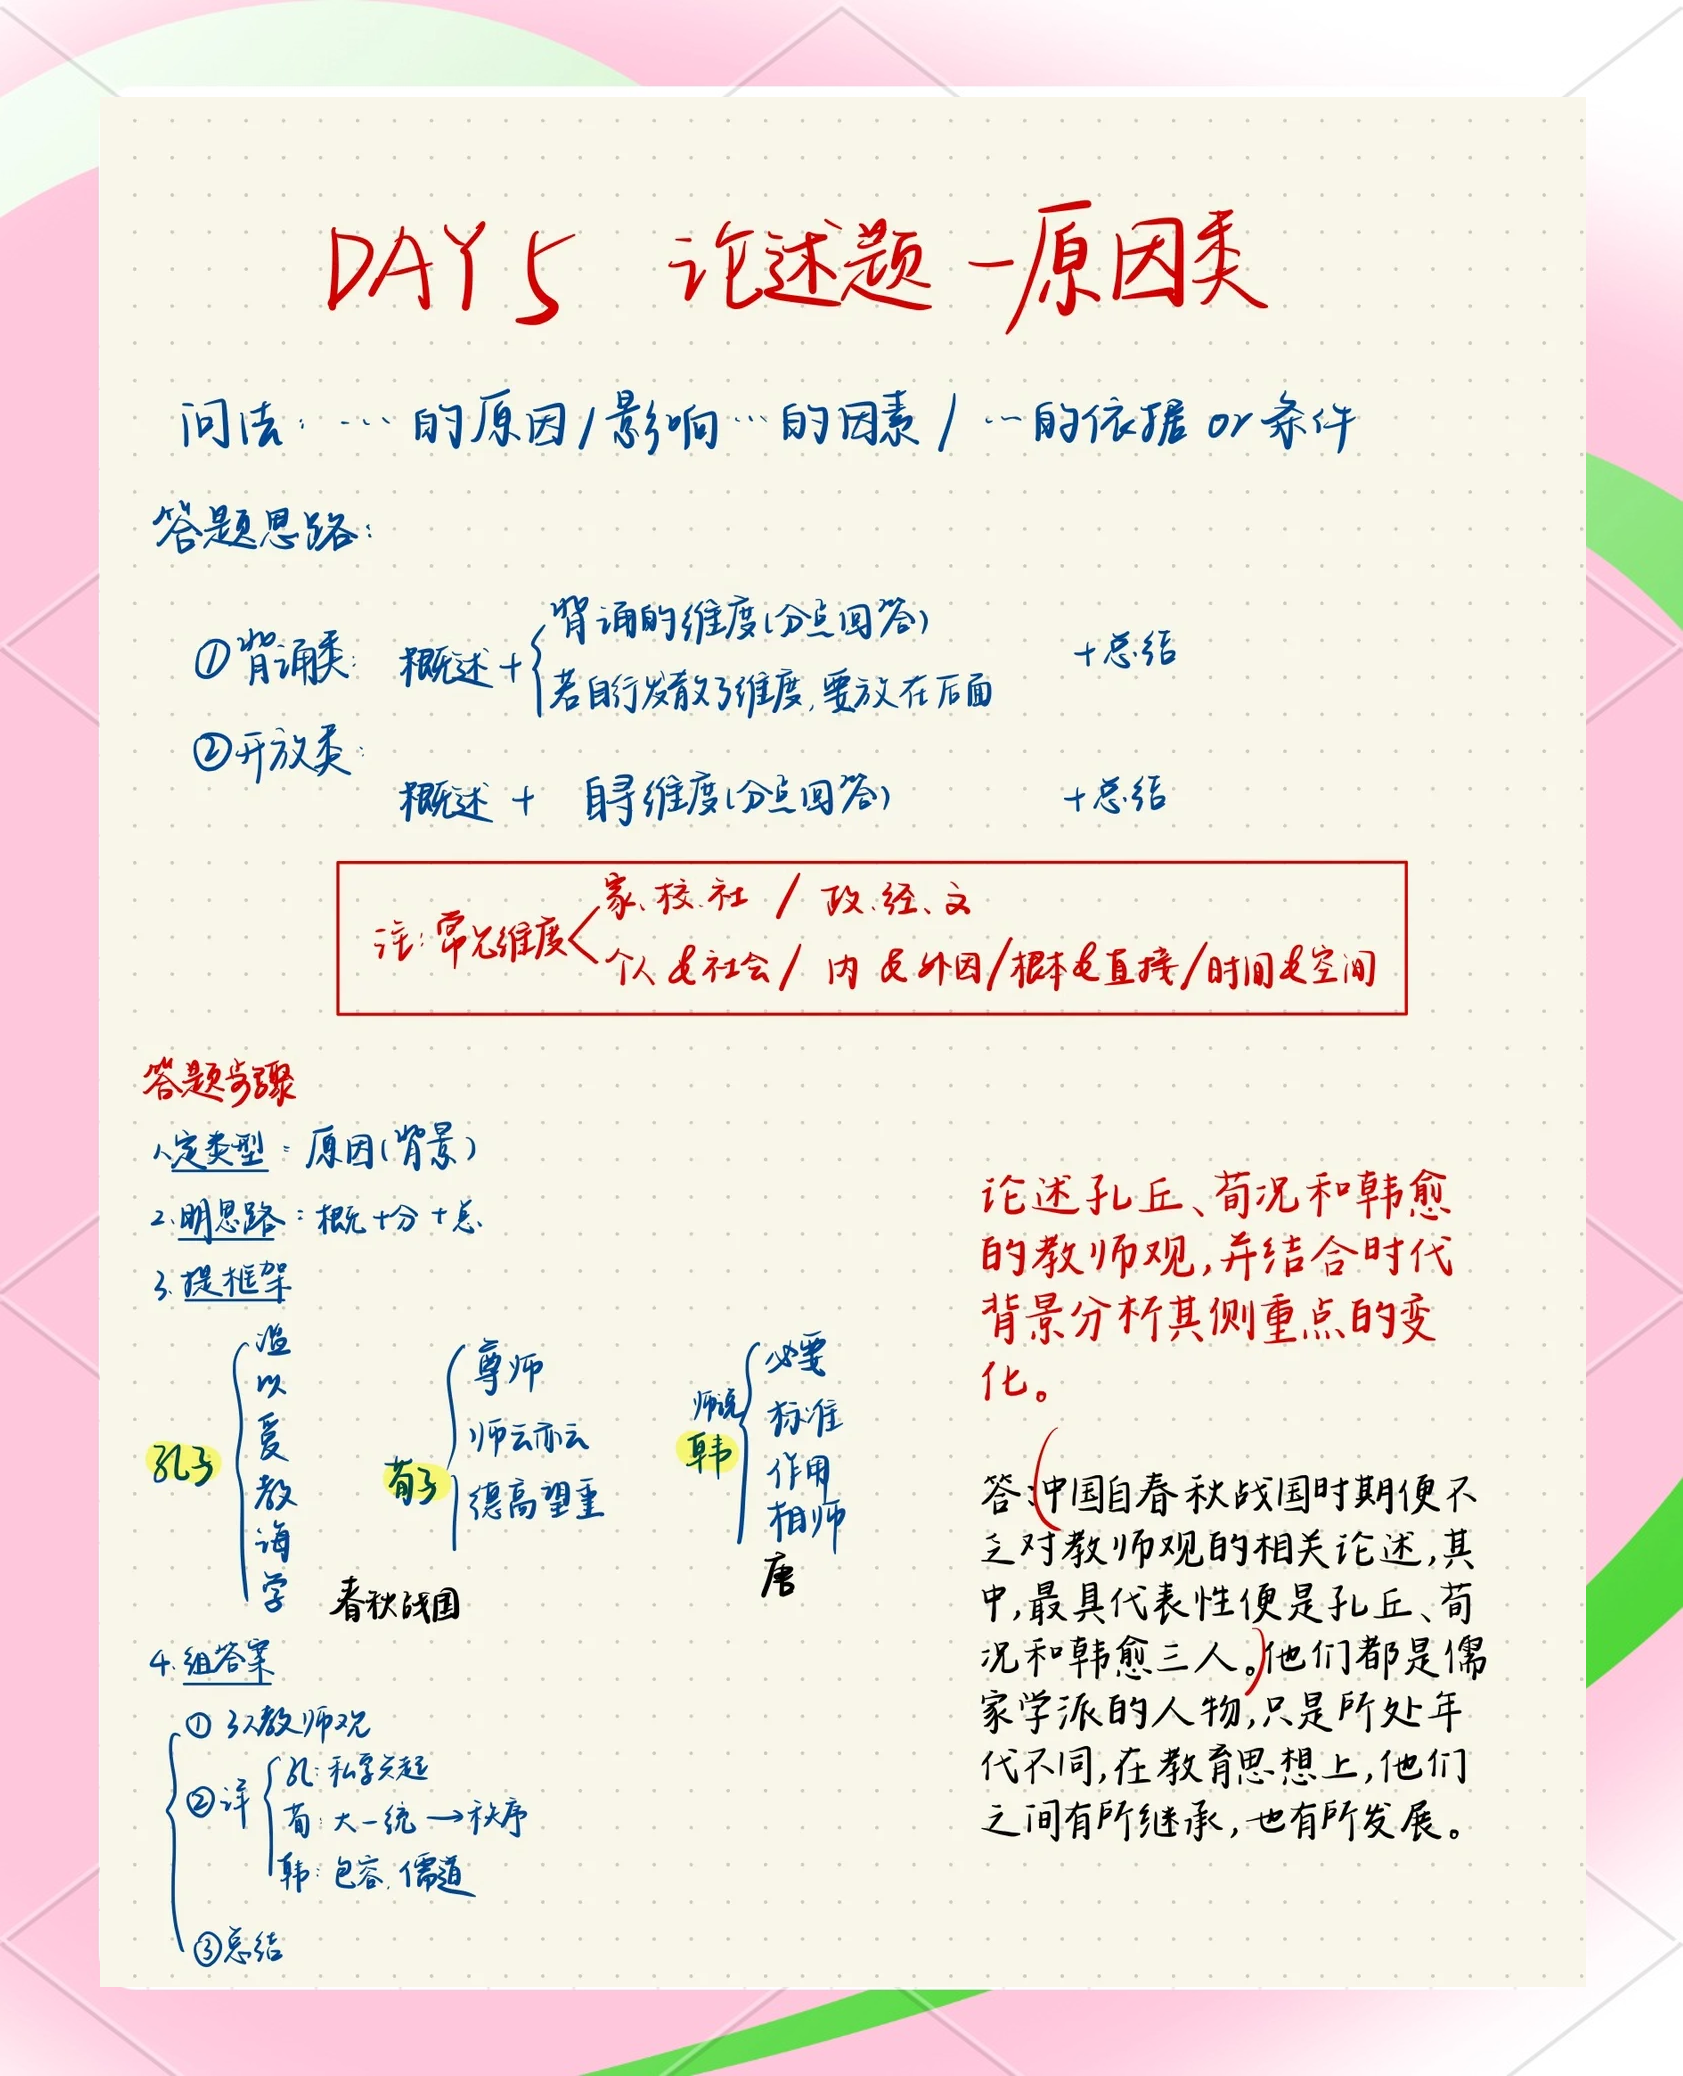 DAY 5 论述题—原因类
问法：……的原因/影响…的因素/…的依据 or 条件
答题思路：
①背诵类：概述+{背诵的维度(分点回答) +总结
若自行发散了维度,要放在后面
②开放类：
概述 + 自寻维度(分点回答) +总结
注：常见维度<家、校、社 / 政、经、文
个人&社会/ 内&外因/根本&直接/时间&空间
答题步骤
1.定类型：原因(背景)
2.明思路：概+分+总
3.提框架
孔子{温
以
爱
教
诲
学
荀子{尊师
师云亦云
德高望重
春秋战国
师说
韩{必要
标准
作用
相师
唐
4.组答案
①3人教师观
②详{孔：私学兴起
荀：大一统→秩序
韩：包容,儒道
③总结
论述孔丘、荀况和韩愈
的教师观,并结合时代
背景分析其侧重点的变
化。
答:(中国自春秋战国时期便不
乏对教师观的相关论述,其
中,最具代表性便是孔丘、荀
况和韩愈三人。)他们都是儒
家学派的人物,只是所处年
代不同,在教育思想上,他们
之间有所继承,也有所发展。